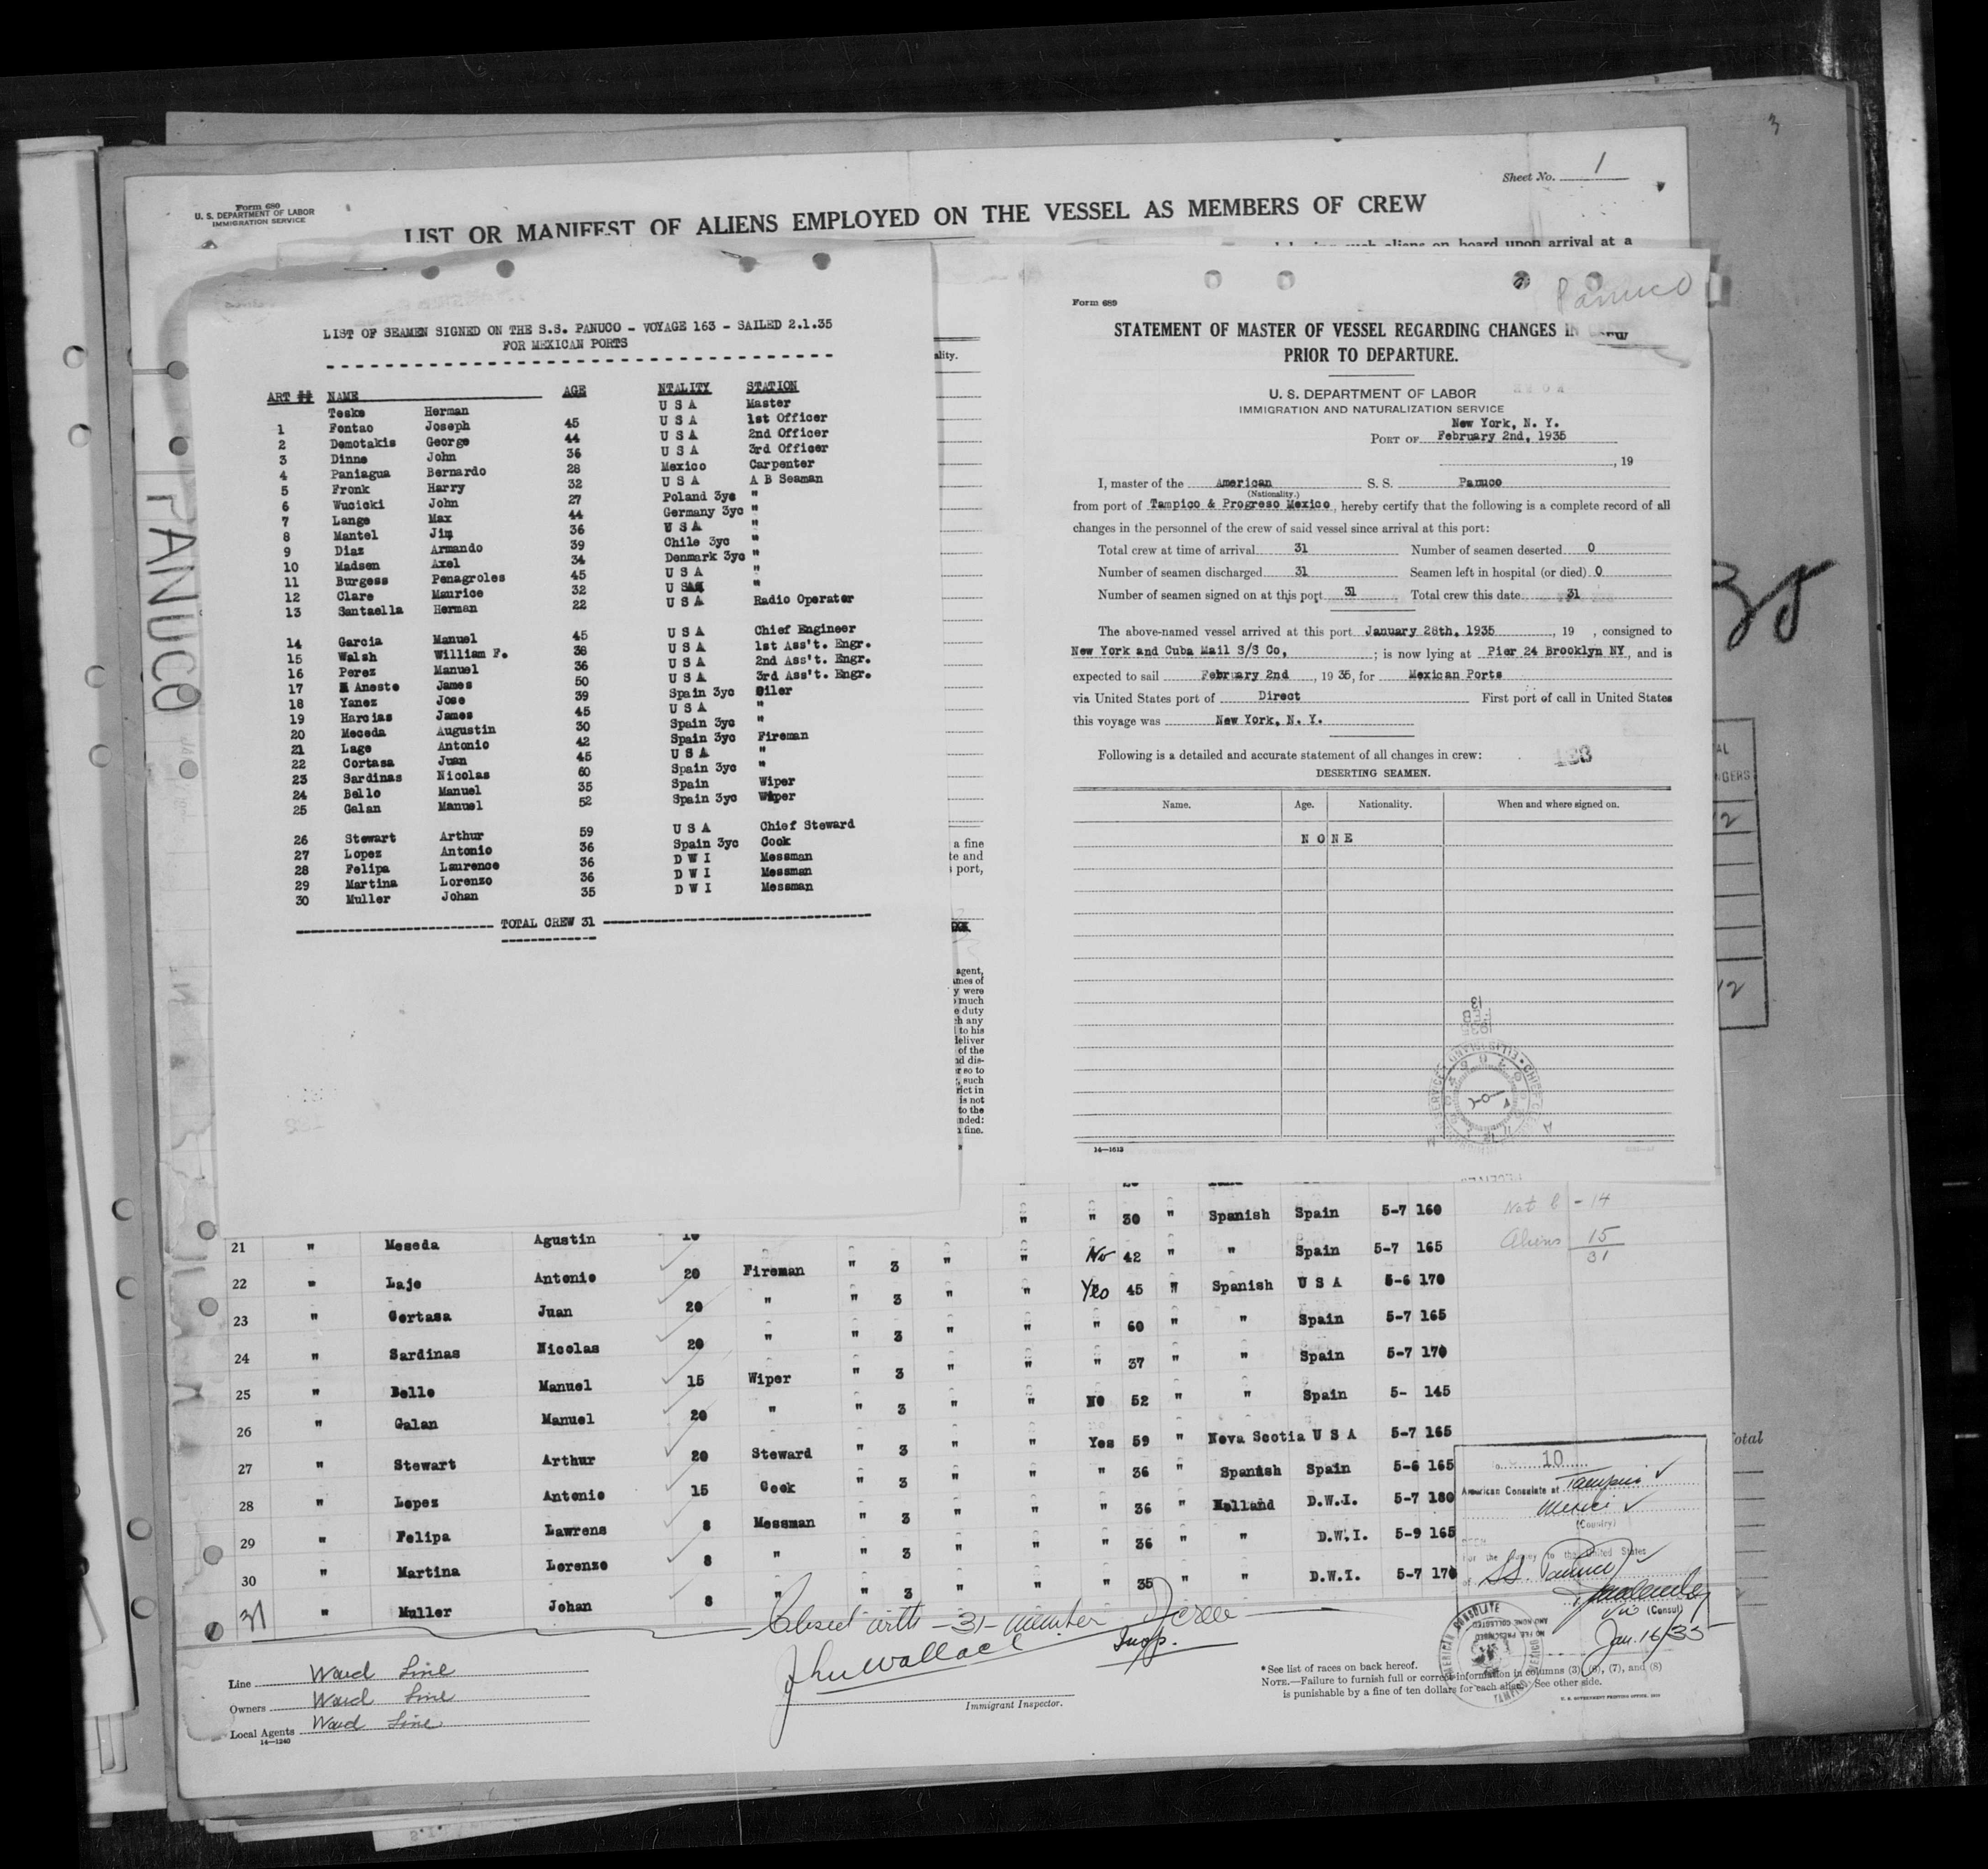 3
Sheet No. 1
Form 680
U. S. DEPARTMENT OF LABOR
IMMIGRATION SERVICE
LIST OR MANIFEST OF ALIENS EMPLOYED ON THE VESSEL AS MEMBERS OF CREW
such aliens on board upon arrival at a
PANUCO
LIST OF SEAMEN SIGNED ON THE S.S. PANUCO - VOYAGE 163 - SAILED 2.1.35
FOR MEXICAN PORTS
ART ## NAME AGE NTALITY STATION
Teske Herman U S A Master
1 Fontao Joseph 45 U S A 1st Officer
2 Demotakis George 44 U S A 2nd Officer
3 Dinne John 36 U S A 3rd Officer
4 Paniagua Bernardo 28 Mexico Carpenter
5 Fronk Harry 32 U S A A B Seaman
6 Wucicki John 27 Poland 3yc "
7 Lange Max 44 Germany 3yc "
8 Mantel Jim 36 U S A "
9 Diaz Armando 39 Chile 3yc "
10 Madsen Axel 34 Denmark 3yc "
11 Burgess Penagroles 45 U S A "
12 Clare Maurice 32 U S A "
13 Santaella Herman 22 U S A Radio Operator
14 Garcia Manuel 45 U S A Chief Engineer
15 Walsh William F. 38 U S A 1st Ass't. Engr.
16 Perez Manuel 36 U S A 2nd Ass't. Engr.
17 Aneste James 50 U S A 3rd Ass't. Engr.
18 Yanez Jose 39 Spain 3yc Oiler
19 Harcias James 45 U S A "
20 Meceda Augustin 30 Spain 3yc "
21 Lage Antonio 42 Spain 3yc Fireman
22 Cortasa Juan 45 U S A "
23 Sardinas Nicolas 60 Spain 3yc "
24 Bello Manuel 35 Spain Wiper
25 Galan Manuel 52 Spain 3yc Wiper
26 Stewart Arthur 59 U S A Chief Steward
27 Lopez Antonio 36 Spain 3yc Cook
28 Felipa Laurence 36 D W I Messman
29 Martina Lorenzo 36 D W I Messman
30 Muller Johan 35 D W I Messman
TOTAL CREW 31
Panuco
Form 689
STATEMENT OF MASTER OF VESSEL REGARDING CHANGES IN CREW
PRIOR TO DEPARTURE.
U. S. DEPARTMENT OF LABOR
IMMIGRATION AND NATURALIZATION SERVICE
New York, N. Y.
PORT OF February 2nd, 1935
, 19
I, master of the American S. S. Panuco
(Nationality.)
from port of Tampico & Progreso Mexico, hereby certify that the following is a complete record of all
changes in the personnel of the crew of said vessel since arrival at this port:
Total crew at time of arrival 31 Number of seamen deserted 0
Number of seamen discharged 31 Seamen left in hospital (or died) 0
Number of seamen signed on at this port 31 Total crew this date 31
The above-named vessel arrived at this port January 28th, 1935, 19 , consigned to
New York and Cuba Mail S/S Co, ; is now lying at Pier 24 Brooklyn NY, and is
expected to sail February 2nd, 19 35, for Mexican Ports
via United States port of Direct First port of call in United States
this voyage was New York, N. Y.
Following is a detailed and accurate statement of all changes in crew:
DESERTING SEAMEN.
Name. Age. Nationality. When and where signed on.
NONE
14—1613
ality.
a fine
te and
port,
agent,
ames of
y were
much
e duty
ch any
to his
deliver
of the
nd dis-
r so to
such
rict in
is not
to the
nded:
fine.
" " 30 " Spanish Spain 5-7 160
21 " Meseda Agustin " No 42 " " Spain 5-7 165
22 " Laje Antonio 20 Fireman " 3 " " Yes 45 " Spanish U S A 5-6 170
23 " Cortasa Juan 20 " " 3 " " " 60 " " Spain 5-7 165
24 " Sardinas Nicolas 20 " " 3 " " " 37 " " Spain 5-7 170
25 " Bello Manuel 15 Wiper " 3 " " No 52 " " Spain 5- 145
26 " Galan Manuel 20 " " 3 " " Yes 59 " Nova Scotia U S A 5-7 165
27 " Stewart Arthur 20 Steward " 3 " " " 36 " Spanish Spain 5-6 165
28 " Lopez Antonio 15 Cook " 3 " " " 36 " Holland D.W.I. 5-7 180
29 " Felipa Lawrens 8 Messman " 3 " " " 36 " " D.W.I. 5-9 165
30 " Martina Lorenzo 8 " " 3 " " " 35 " " D.W.I. 5-7 170
31 " Muller Johan 8 " " 3 " "
Aliens 15
31
- 14
Closed with -31- member crew
John Wallace Insp.
Immigrant Inspector.
Line Ward Line
Owners Ward Line
Local Agents Ward Line
14—1240
10
American Consulate at Tampico
Mexico
(Country)
For the journey to the United States
of S.S. Panuco
(Consul)
Jan. 16/35
AMERICAN CONSULATE
NO FEE PRESCRIBED
AND NONE COLLECTED
*See list of races on back hereof.
NOTE.—Failure to furnish full or correct information in columns (3), (6), (7), and (8)
is punishable by a fine of ten dollars for each alien. See other side.
U. S. GOVERNMENT PRINTING OFFICE
NGERS
12
12
Total